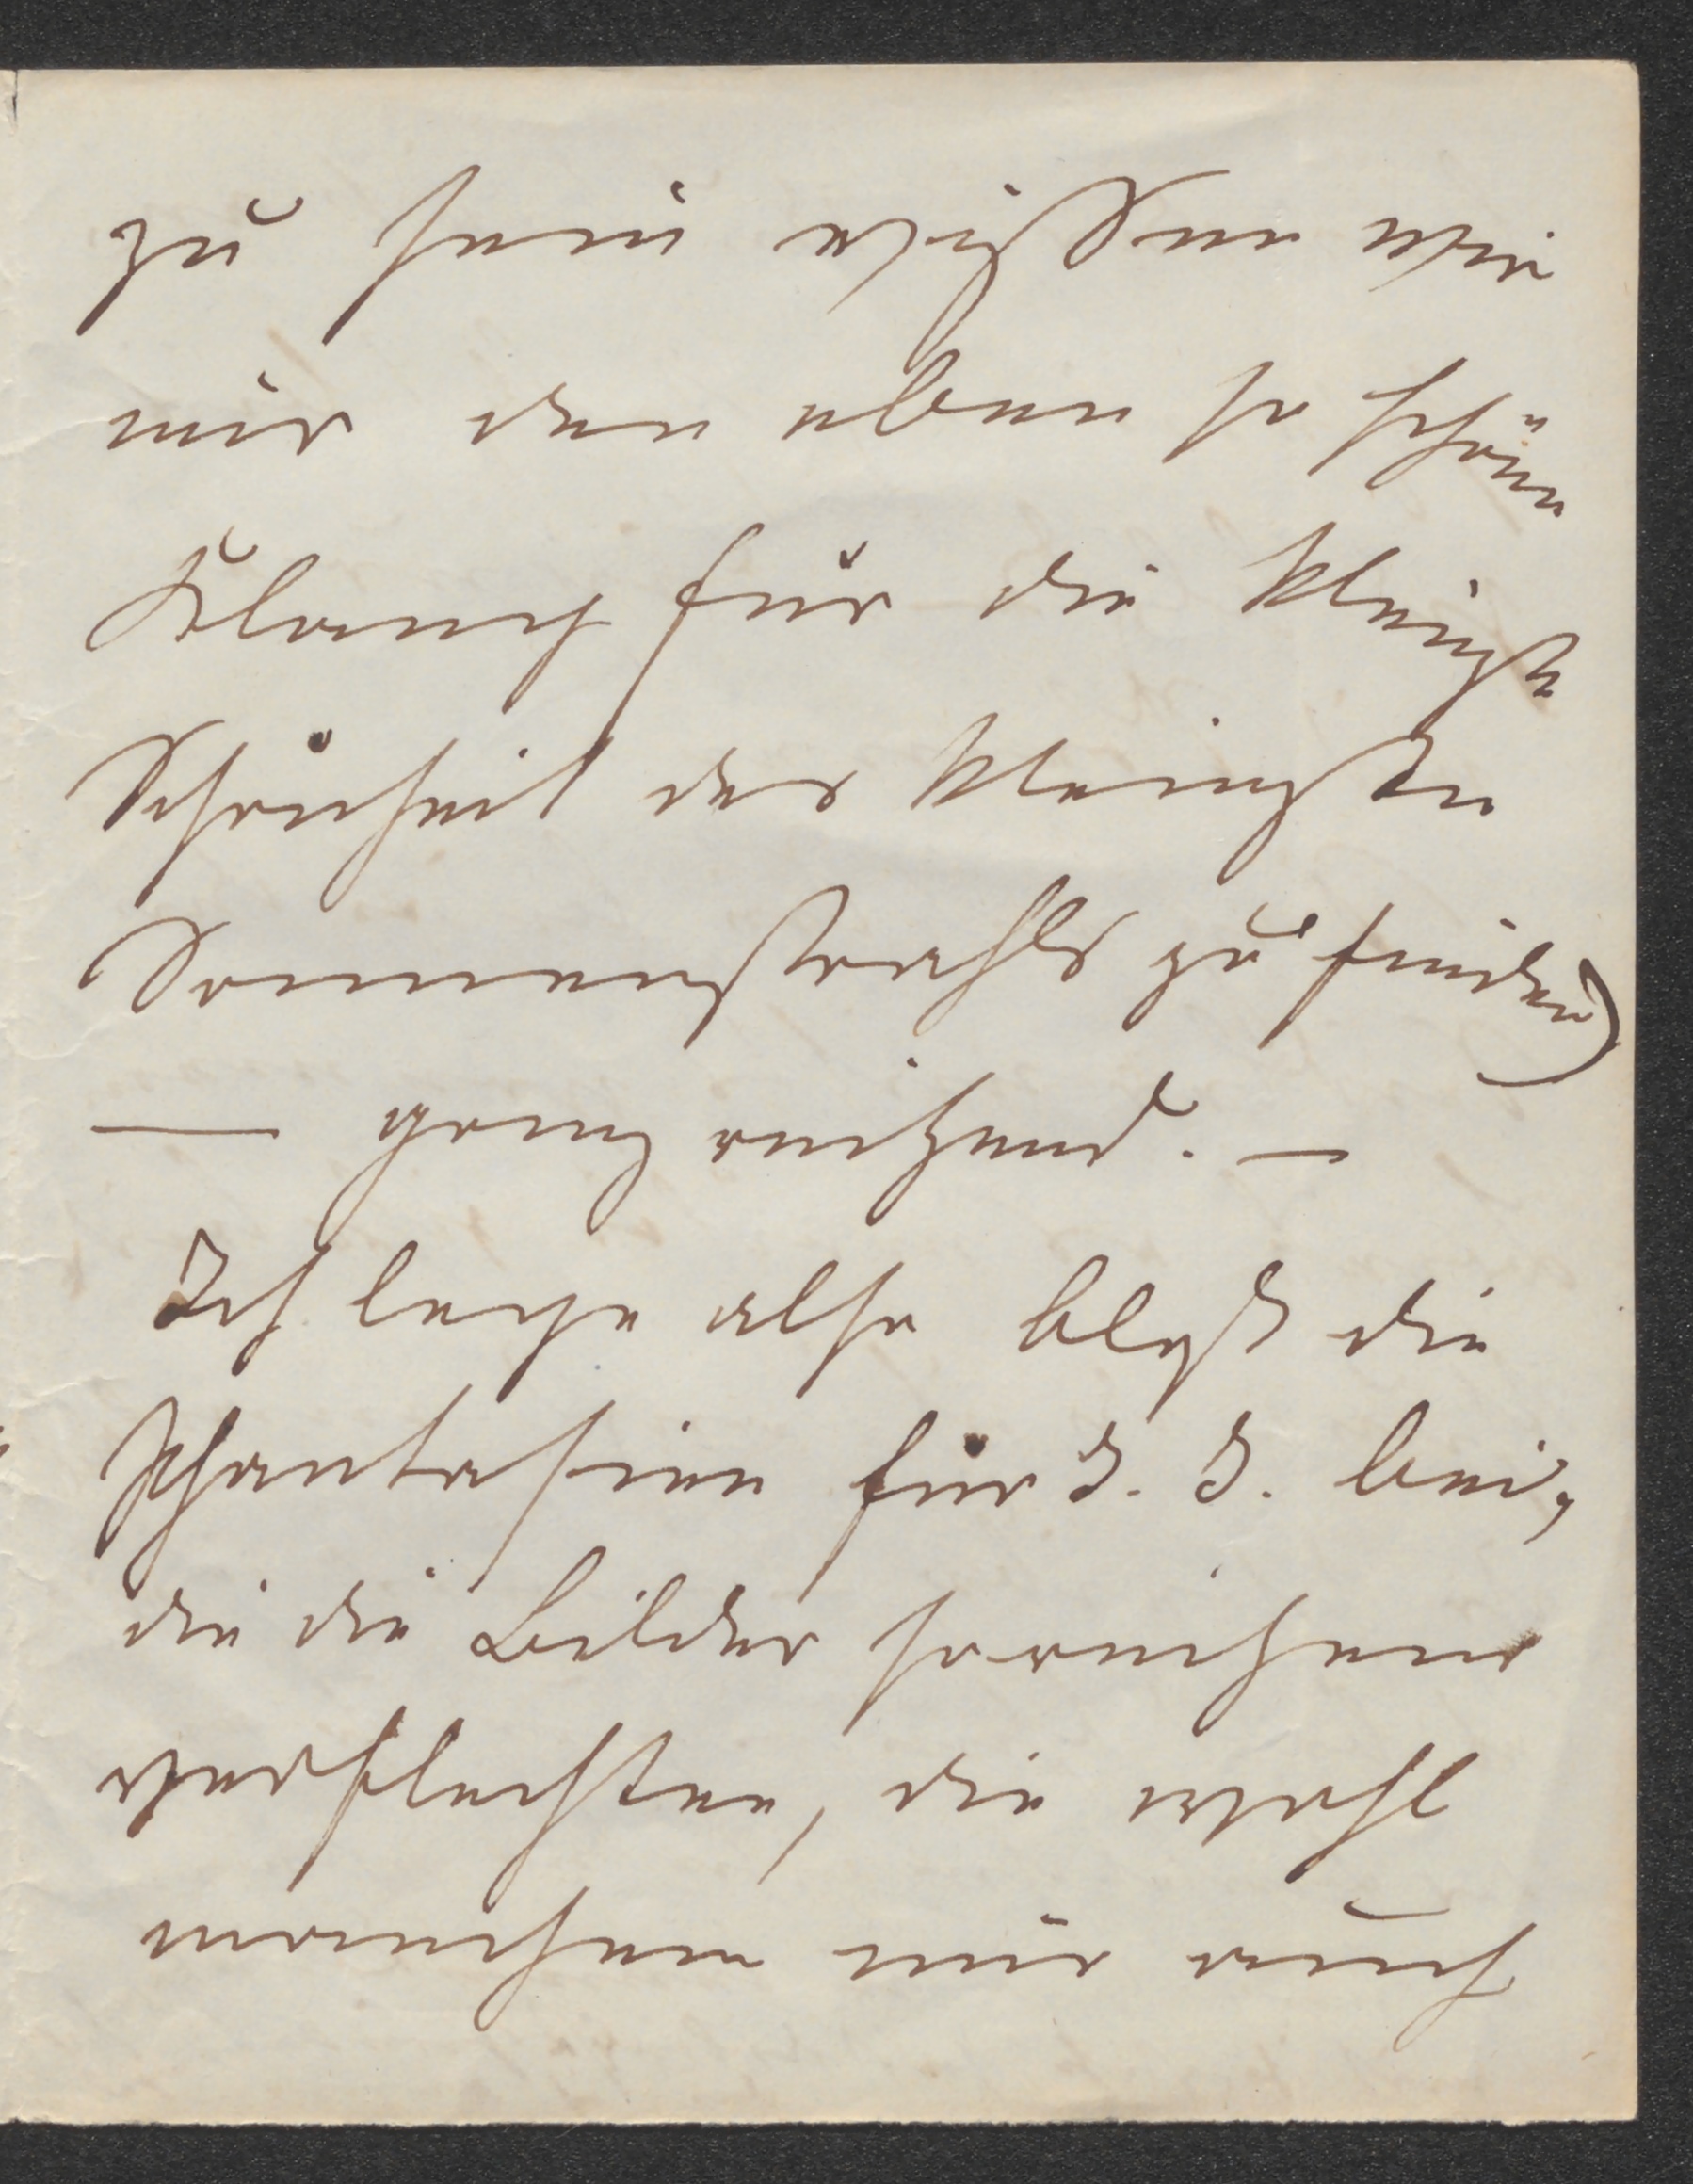 zu sein wißen wir
nur den eben so schönen
Klang für die kleinste
Schönheit des kleinsten
Sonnenstrahls zu finden)
— ganz reitzend. —
Ich lege also bloß die
Phantasien für S. S. bei,
die die Bilder so reitzend
verflechten, die wohl
manchem nur auch